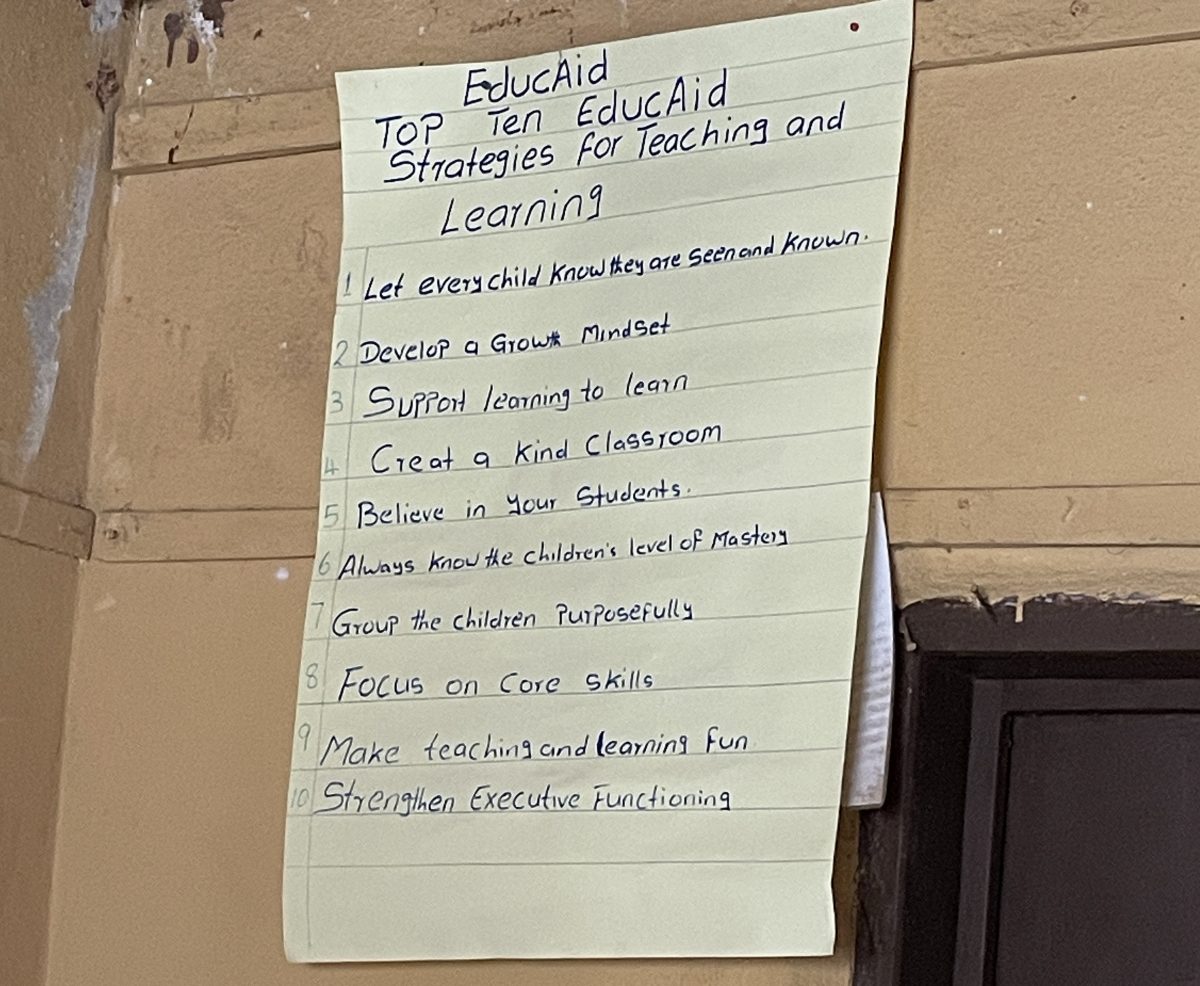 EducAid
TOP Ten EducAid
Strategies for Teaching and
Learning
1 Let every child know they are seen and known.
2 Develop a Growth Mindset
3 Support learning to learn
4 Creat a kind Classroom
5 Believe in your Students.
6 Always know the children's level of Mastery
7 Group the children Purposefully
8 Focus on Core skills
9 Make teaching and learning fun
10 Strengthen Executive Functioning